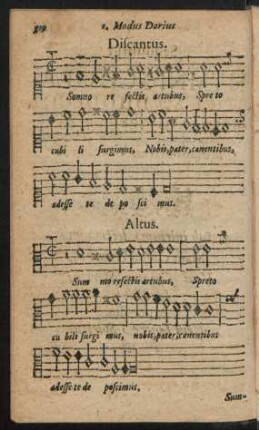 1. Modus Dorius
Discantus.
Somno re fectis artubus, Spre to
cubi li surgimus, Nobis, pater, canentibus,
adesse te de po sci mus.
Altus.
Som no refectis artubus, Spreto
cu bili surgi mus, nobis, pater, canentibus
adesse te de poscimus.
Sum-